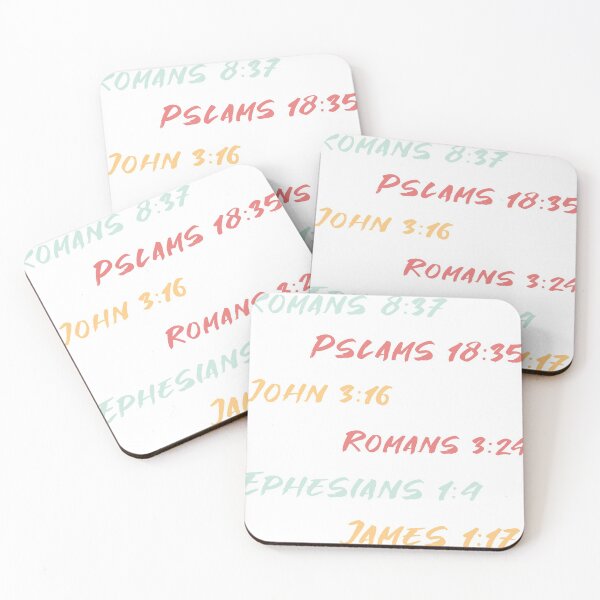 ROMANS 8:37
PSLAMS 18:35
JOHN 3:16
ROMANS 8:37
PSLAMS 18:35
JOHN 3:16
ROMANS 3:24
1:17
ROMANS 8:37
PSLAMS 18:35
JOHN 3:16
ROMANS
EPHESIANS
ROMANS 8:37
PSLAMS 18:35
JOHN 3:16
ROMANS 3:24
EPHESIANS 1:9
JAMES 1:17